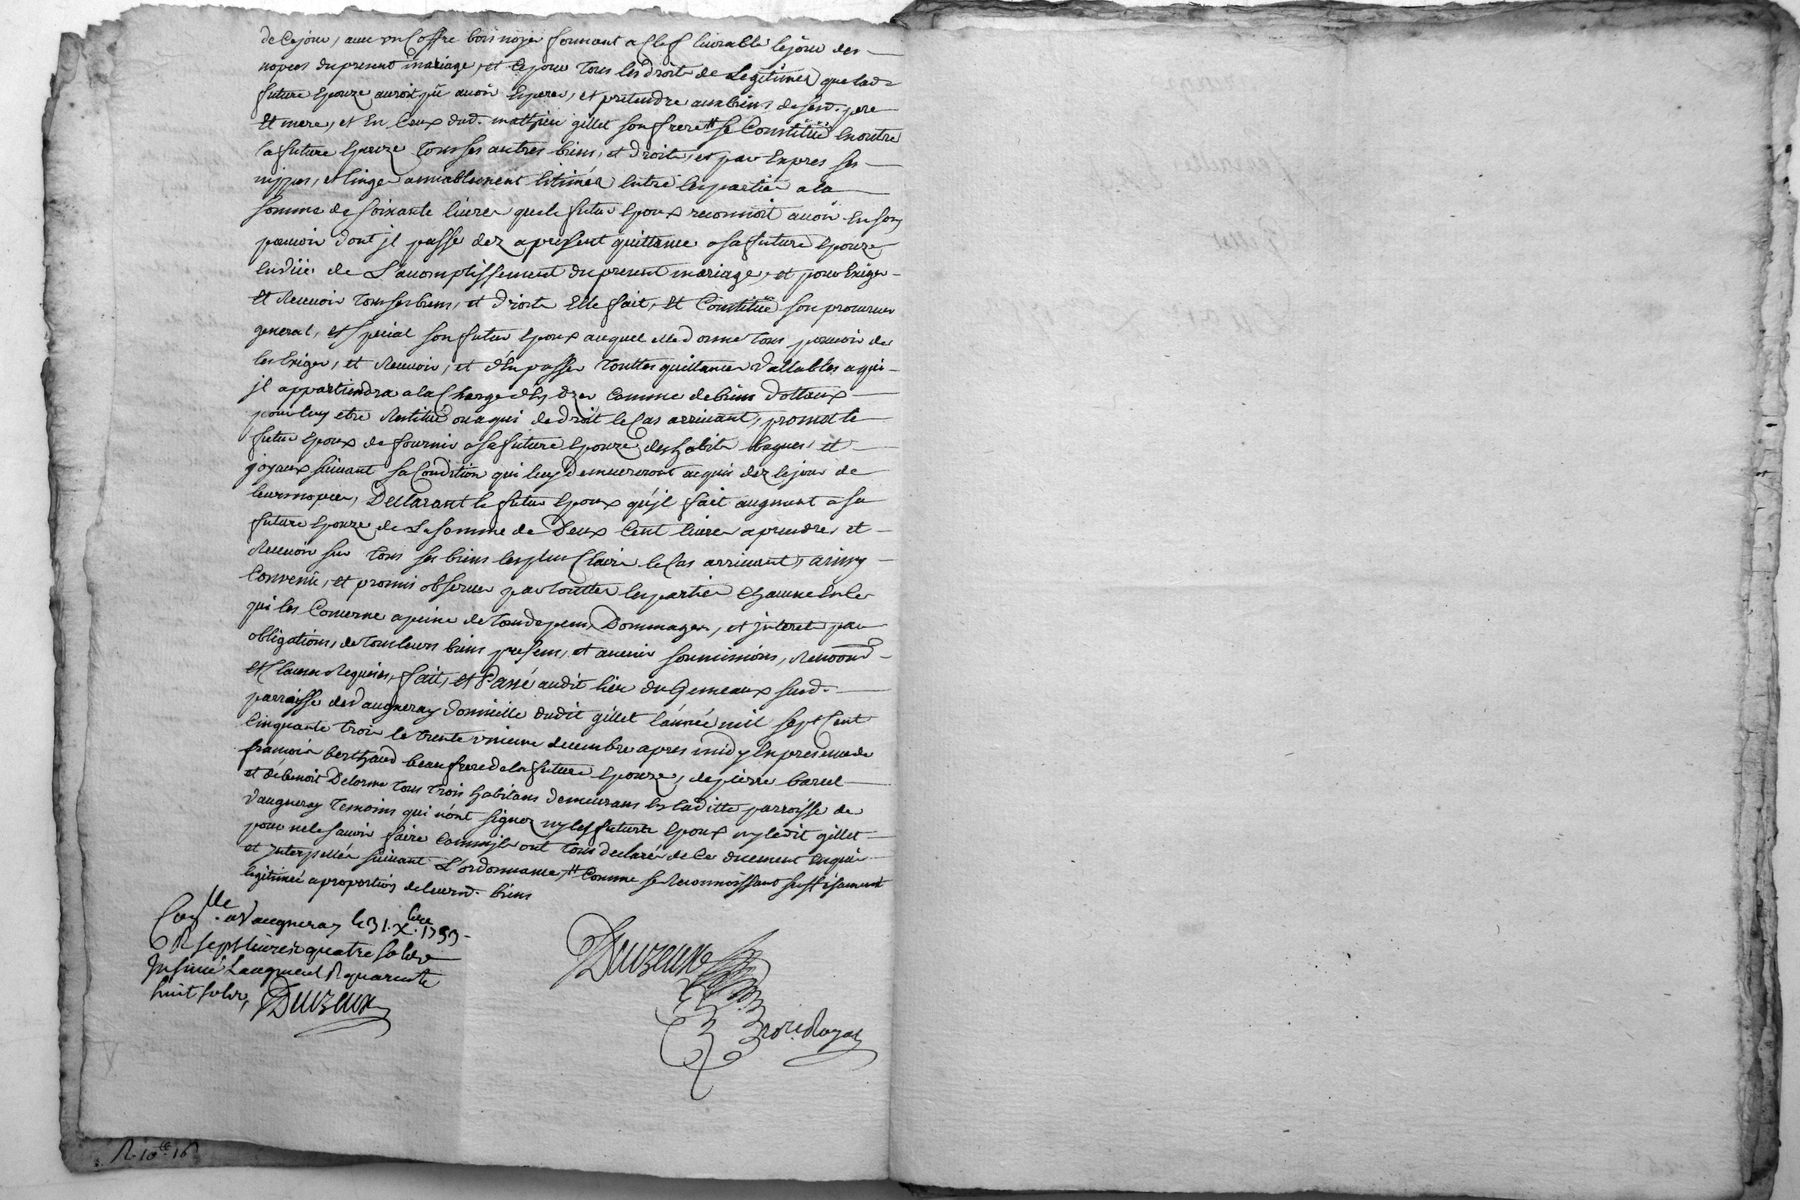 de ce jour, avec un coffre bois noyer fermant a clef livrable le jour des
nopces du present mariage, et ce pour tous les droits de Legitimes que lad.
future Epouze auroit pû avoir Esperer, et pretendre aux biens de sesd. pere
Et mere, et En Ceux dud. mathieu gillet son frere # se Constituë En outre
la future Epouze tous ses autres biens, et droits, et par Expres ses
nippes, et linges amiablement Estimés Entre les parties a la
somme de soixante livres que le futur Epoux reconnoit avoir En son
pouvoir dont jl passe dez apresent quittance a sa future Epouze
de L'acomplissement du present mariage, et pour Exiger
et Recevoir tous ses biens, et droits Elle fait, Et Constituë son procureur
general, et special son futur Epoux auquel elle donne tous pouvoir de
les Exiger, et Recevoir, et d'En passer touttes quittances Vallables a qui
jl appartiendra a la Charge d'En Comme de biens Dottaux
pour luy etre Restitué ou a qui de droit le Cas arrivant, promet le
futur Epoux de fournir a sa future Epouze des habits bagues et
joyaux suivant sa Condition qui luy demeureront acquis dez le jour de
leurs nopces, Declarant le futur Epoux qu'jl fait augment a sa
future Epouze de La somme de Deux Cent livres a prendre, et
Recevoir sur tous ses biens les plus Clairs le Cas arrivant, ainsy
Convenû, et promis observer par touttes les parties Chacune En Ce
qui les Concerne a peine de tous depens Dommages, et jnterets par
obligations, de tous leurs biens presens, et avenir soumissions, Renond.
et Clauses Requises, fait, et Passé audit lieu du Gemeaux susd.
parroisse de Vaugneray domicille dudit gillet l'année mil sept Cent
Cinquante trois le trente unieme decembre apres midy En presence de
francois berthaud beaufrere de la future Epouze, de pierre barel
et de benoit Delorme tous trois habitans demeurans En laditte parroisse de
Vaugneray temoins qui n'ont signez ny les futurs Epoux ny ledit gillet
pour ne le savoir faire Comme jls ont tous declarés de Ce duement Enquis
et jnterpellés suivant L'ordonnance, # Comme se Reconnoissant suffisament
legitimée a proportion de leursd. biens
Con.lle a Vaugneray le 31. Xbre 1753
R sept livres quatre sols
Jnsinué Laugment R quarente
huit sols, Deuzeux
Deuzeux
No.re Royal
R. 10